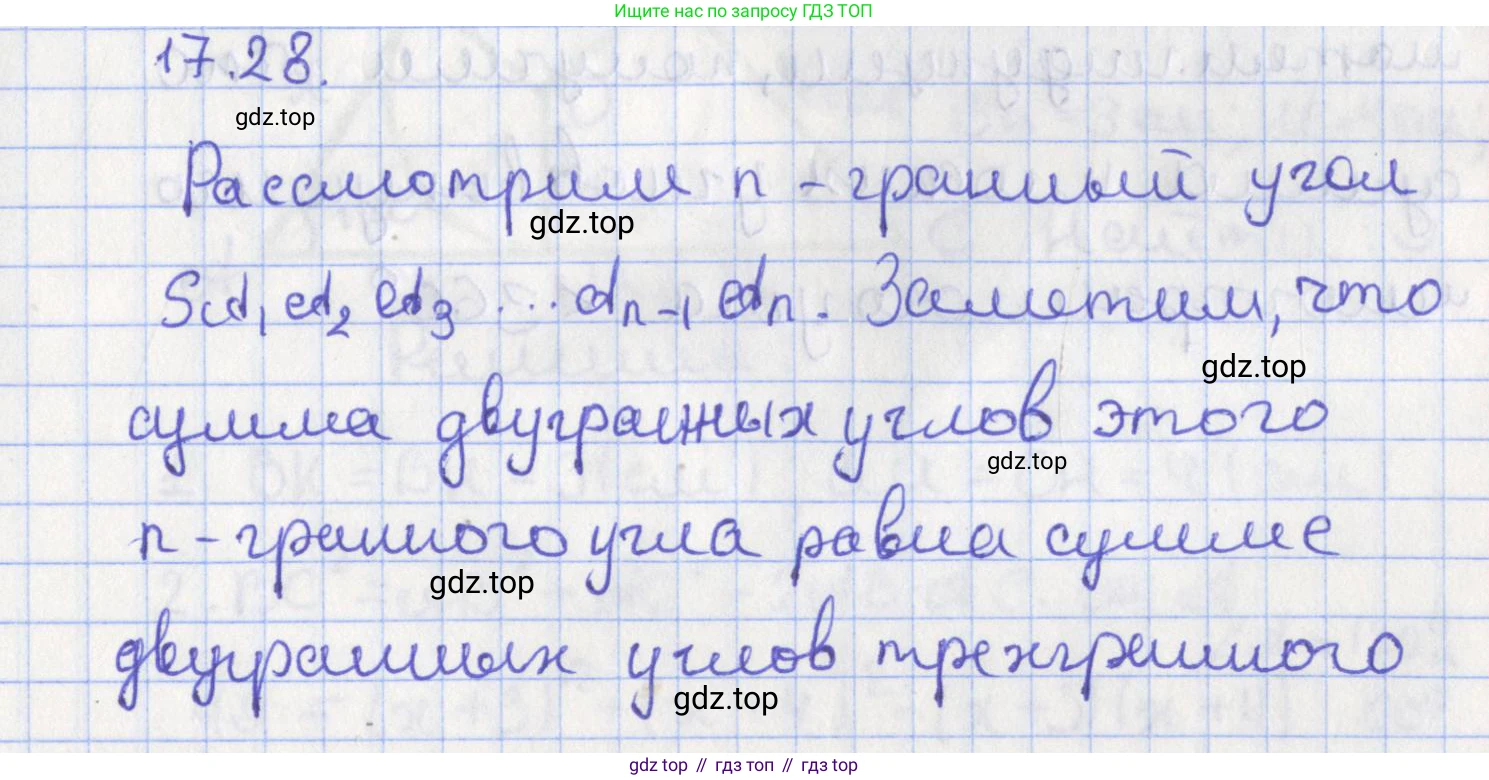 Ищите нас по запросу ГДЗ ТОП
17.28.
gdz.top
Рассмотрим n-гранный угол
gdz.top
SA₁A₂A₃...Aₙ₋₁Aₙ. Заметим, что
gdz.top
сумма двугранных углов этого
gdz.top
n-гранного угла равна сумме
gdz.top
двугранных углов трехгранного
gdz.top
gdz.top // гдз топ // гдз top